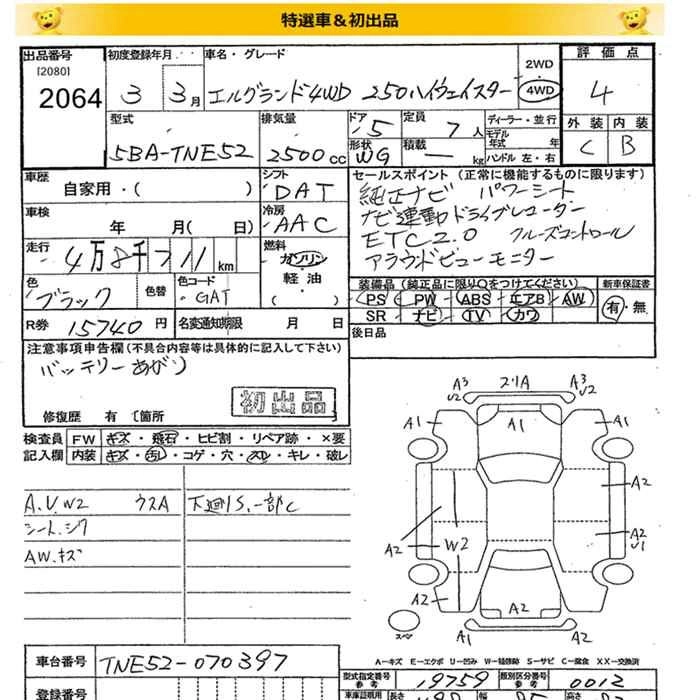 特選車＆初出品
出品番号
[2080]
2064
初度登録年月
3 3月
車名・グレード
エルグランド4WD 250ハイウェイスター
2WD
4WD
評価点
4
外装 内装
C B
型式
5BA-TNE52
排気量
2500cc
ドア
5
定員
7人
形状
WG
積載
kg
ディーラー・並行
モデル年式 年
ハンドル 左・右
車歴
自家用・( )
シフト
DAT
冷房
AAC
車検
年 月( 日)
走行
4万8千711km
燃料
ガソリン
軽油
( )
セールスポイント (正常に機能するものに限ります)
純正ナビ パワーシート
ナビ連動ドライブレコーダー
ETC2.0 クルーズコントロール
アラウンドビューモニター
色
ブラック
色替
色コード
GAT
装備品 (純正品に限り○をつけてください)
PS PW ABS エアB AW
SR ナビ TV カワ
新車保証書
有・無
R券 15740円
名変通知期限 月 日
後日品
注意事項申告欄(不具合内容等は具体的に記入して下さい)
バッテリーあがり
初出品
修復歴 有 〔箇所 〕
検査員記入欄
FW キズ・飛石・ヒビ割・リペア跡・×要
内装 キズ・汚レ・コゲ・穴・スレ・キレ・破レ
A.V.W2 ウスA
下廻りS.一部C
シート.シワ
AW.キズ
A3
U2
スリA
A3
U2
A1
A1
A1
A2
A2
U1
A2
W2
A2
A2
A2
スペア
A1
A2
A－キズ E－エクボ U－凹み W－補修跡 S－サビ C－腐食 XX－交換済
車台番号
TNE52-070397
型式指定番号
参考
19759
類別区分番号
参考
0012
登録番号
車庫証明用